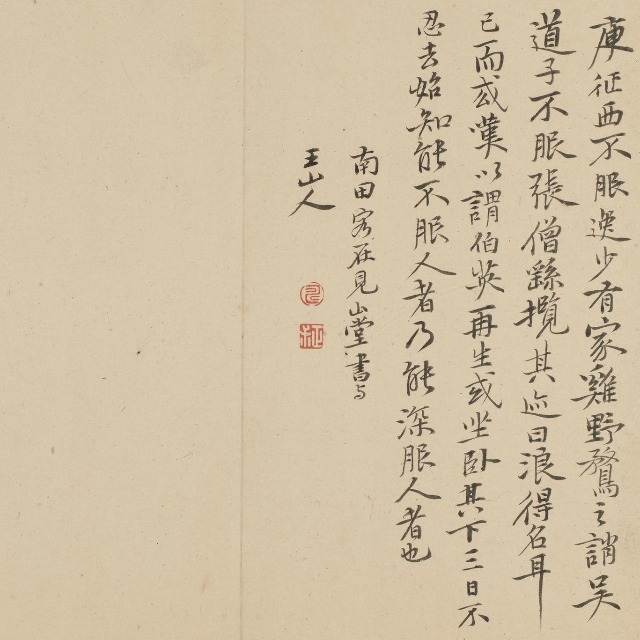 庾征西不服逸少有家雞野鶩之誚吳
道子不服張僧繇攬其迹曰浪得名耳
已而或嘆以謂伯英再生或坐臥其下三日不
忍去始知能不服人者乃能深服人者也
南田客在見山堂書与
王山人